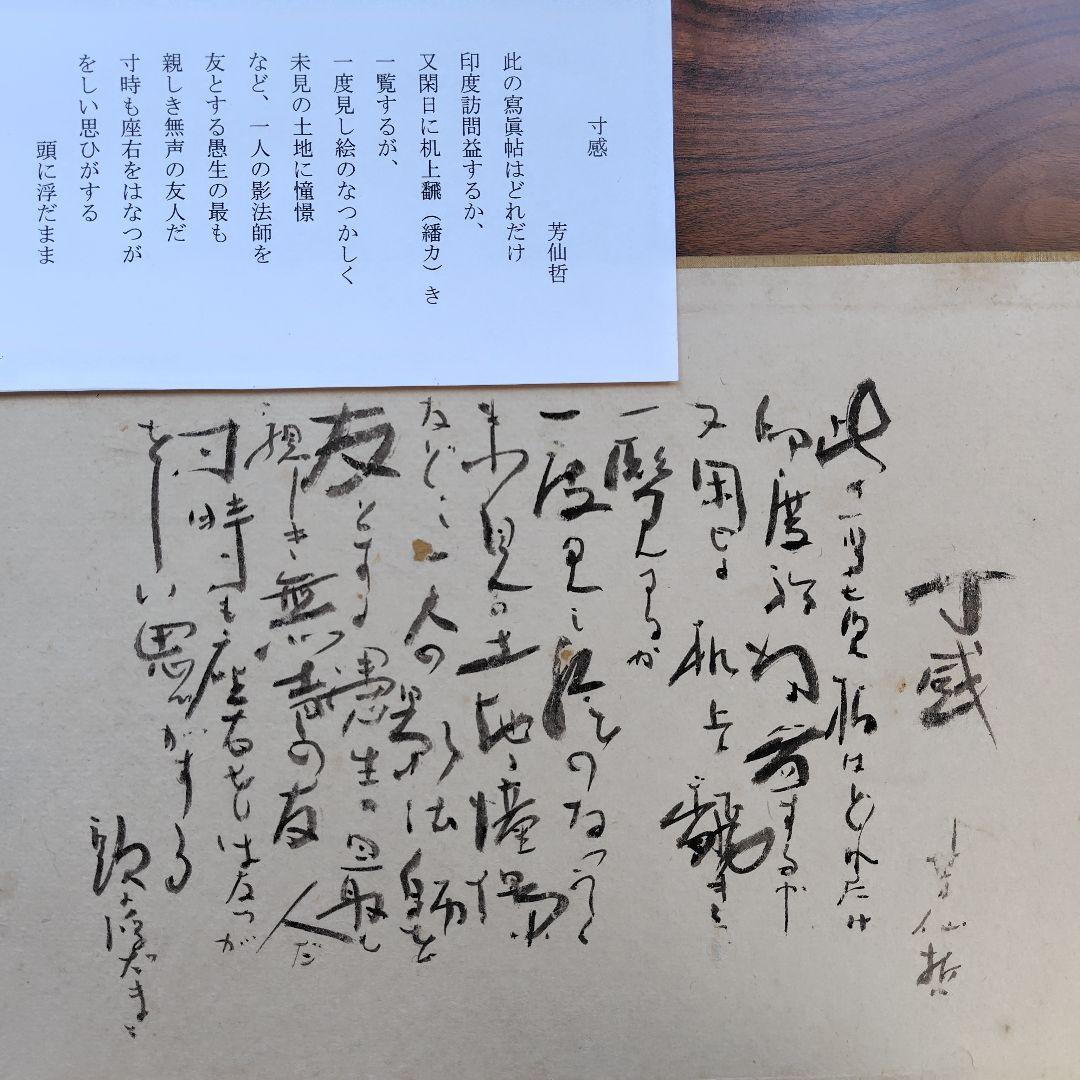 寸感
芳仙哲
此の寫眞帖はどれだけ
印度訪問益するか、
又閑日に机上飜（繙カ）き
一覧するが、
一度見し絵のなつかしく
未見の土地に憧憬
など、一人の影法師を
友とする愚生の最も
親しき無声の友人だ
寸時も座右をはなつが
をしい思ひがする
頭に浮だまま
寸感
芳仙哲
此の寫眞帖はどれだけ
印度訪問益するか
又閑日に机上飜き
一覧するが
一度見し絵のなつかしく
未見の土地に憧憬
など、一人の影法師を
友とする愚生の最も
親しき無声の友人だ
寸時も座右をはなつが
をしい思ひがする
頭に浮だまま